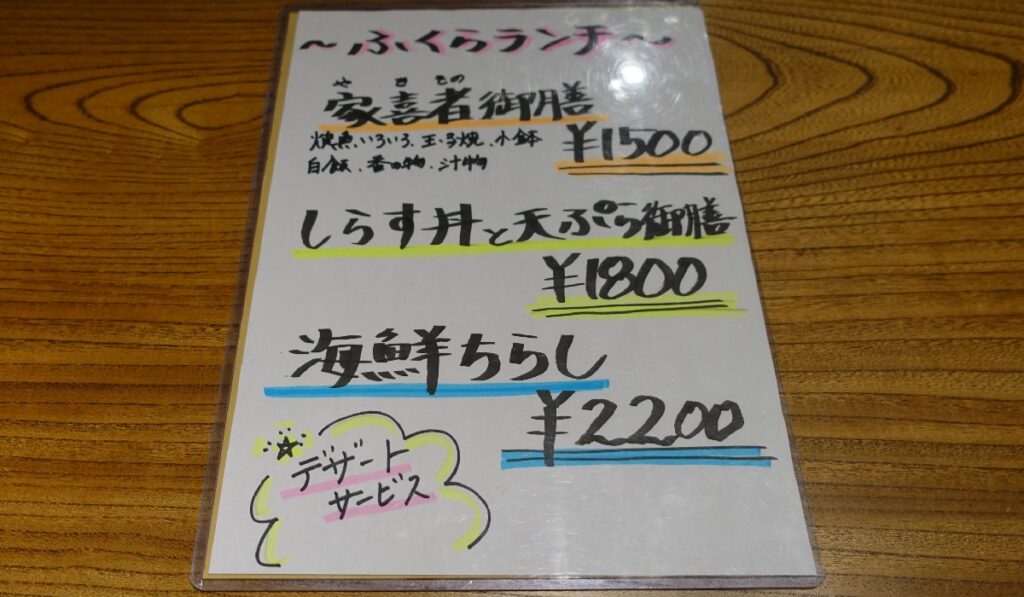 ～ふくらランチ～
やきもの
家喜者御膳
焼魚いろいろ、玉子焼、小鉢
¥1500
白飯、香の物、汁物
しらす丼と天ぷら御膳
¥1800
海鮮ちらし
¥2200
デザート
サービス